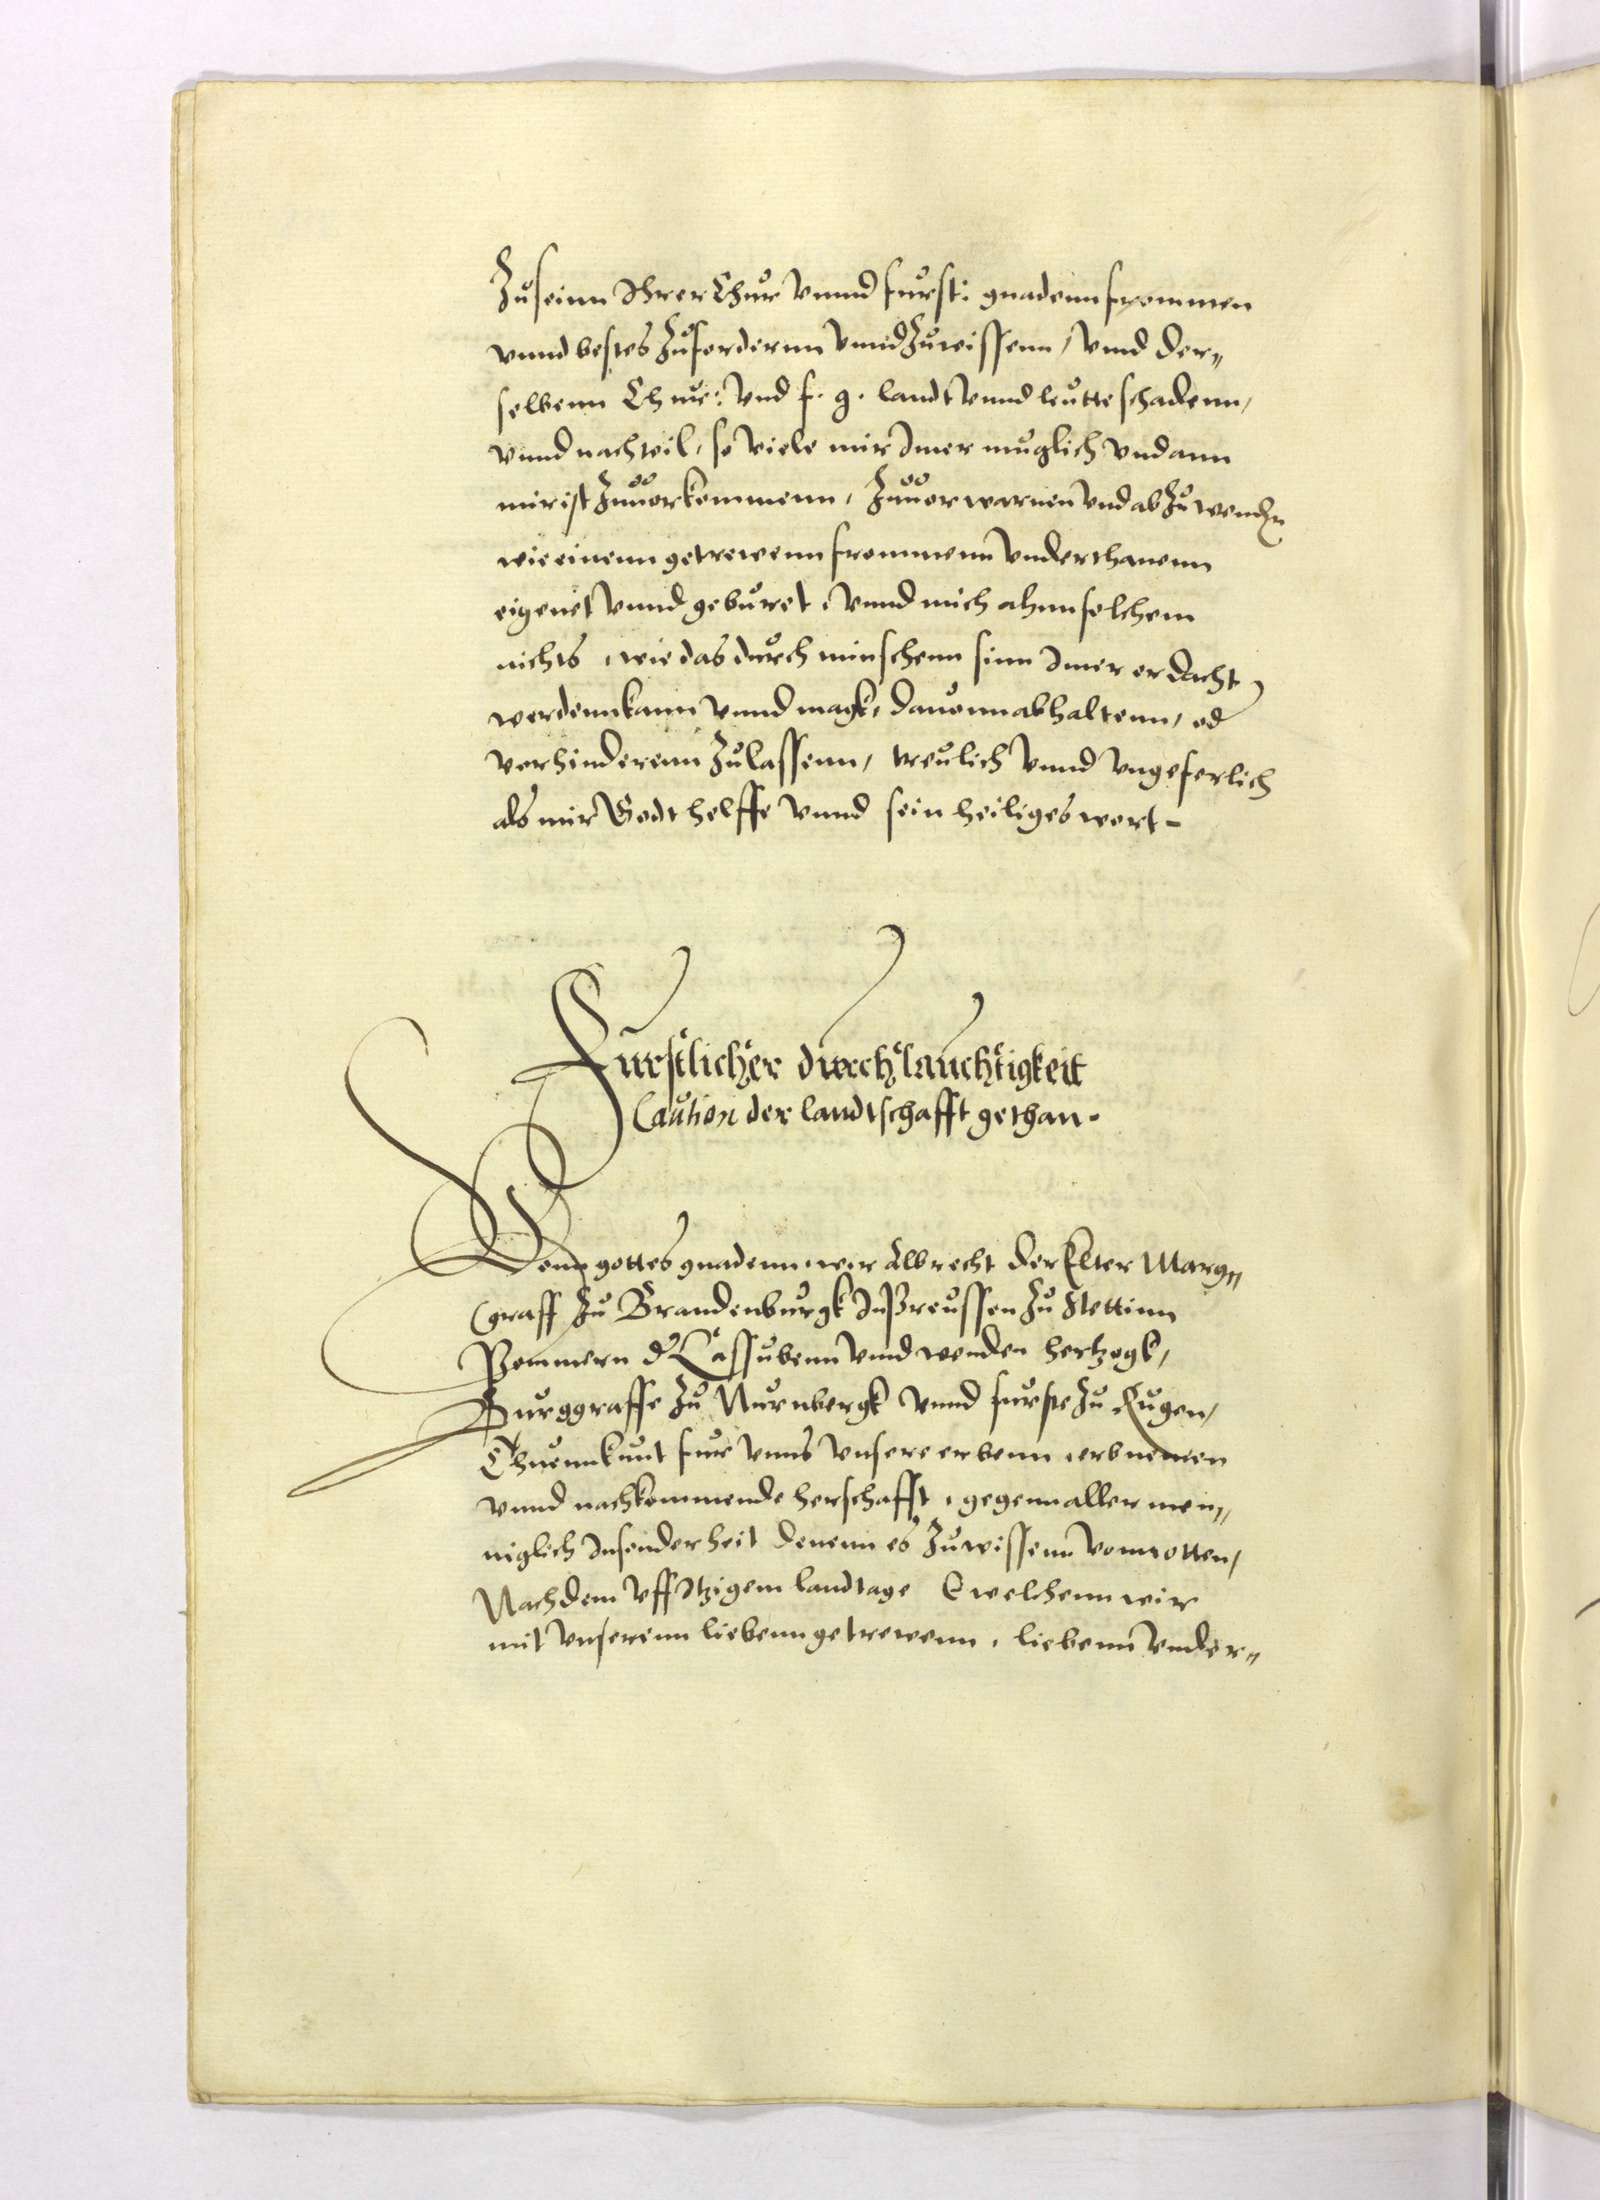 Zu seinn Ihrer Chur vnnd furst: gnadenn frommen
vnnd bestes zufordernn vnnd zuwissenn, vnnd der„
selbenn Chur: vnd f. g. landt vnnd leutte schadenn,
vnnd nachteil, so viele mir imer muglich vnd ann
mir ist zuuorkommenn, zuuorwarnen vnd abzuwenden
wie einenn getrewenn frommenn vnderthanenn
eigenet vnnd geburet, vnnd mich ahnn solchem
nichts, wie das durch minschenn sinn imer erdacht
werdenn kann vnnd magk, dauonn abhaltenn, od
verhinderenn zulassenn, treulich vnnd vngeferlich
als mir Godt helffe vnnd sein heiliges wort -
Furstlicher durchlauchtigkeit
Caution der landtschafft gethan.
Vonn gottes gnadenn wir Albrecht der Elter Marg„
graff zu Brandenburgk In Preussen zu Stettinn
Pommern d Cassubenn vnnd wenden hertzogk,
Burggraffe zu Nurnbergk vnnd furste zu Rugen,
Thuenn kunt fur vnns vnsere erbenn erbnemen
vnnd nachkommende herschafft, gegenn aller men„
niglich Insonderheit denenn es zuwissenn vonnotten,
Nachdem vff itzigem landtage (welchenn wir
mit vnserenn liebenn getrewenn, liebenn vnder„